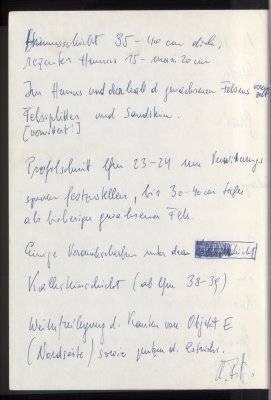 Humusschicht 35-40 cm dick,
reiner Humus 15- max 20 cm
Im Humus und oberhalb d. gewachsenen Felsens
Felssplitter und Sandstein.
[verwittert!]
Profilschnitt lfm 23-24 um Verwitterungs
spuren festzustellen, bis 30-40 cm tiefer
als bisheriger gewachsener Fels.
Einige Keramikscherben unter dem
Kalksteinschicht (ab lfm 38-39)
Weiterfreilegung d. Kanten von Objekt E
(Nordseite) sowie putzen d. Estrichs.